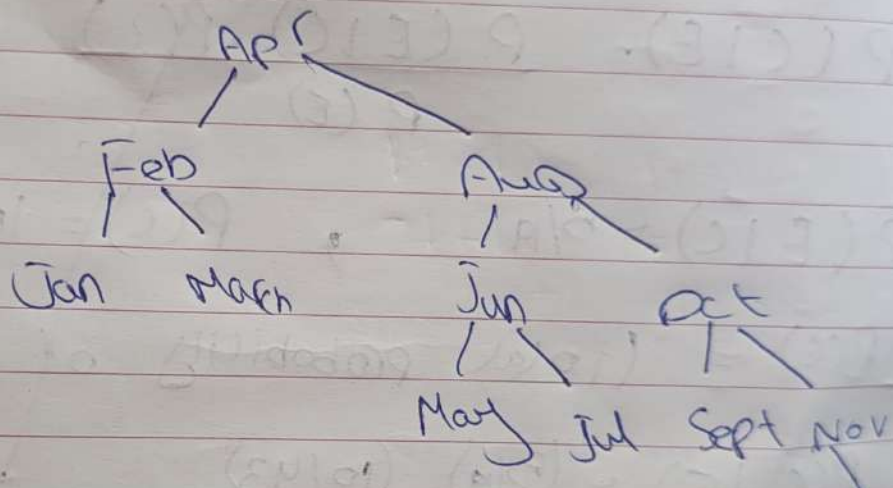 Apr
Feb Aug
Jan March Jun Oct
May Jul Sept Nov